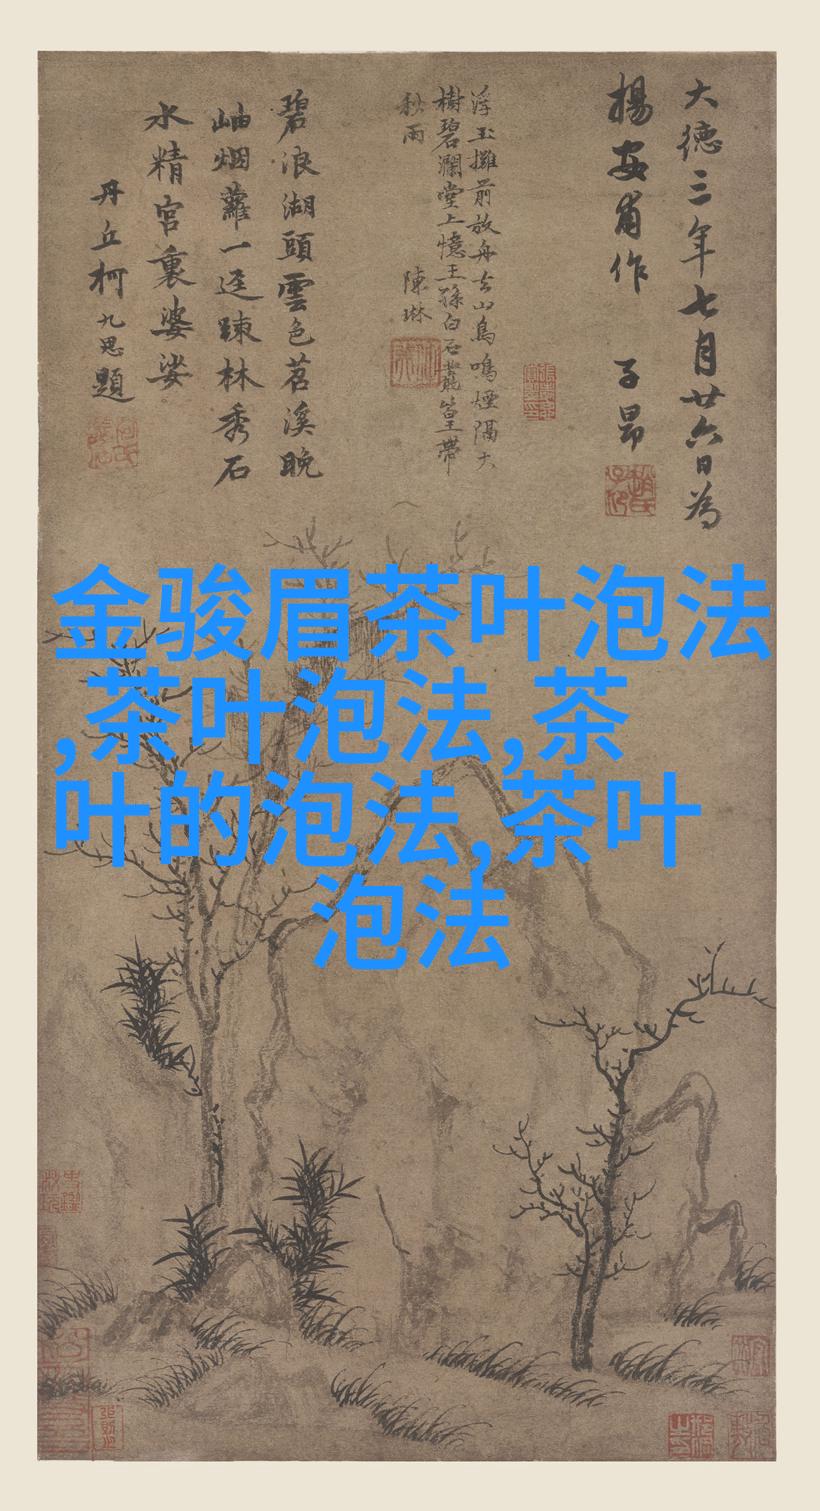 大德三年七月廿六日為
楊安甫作 子昂
浮玉攤前放舟去山鳥鳴煙隔大
樹碧瀾堂上憶王孫白石叢篁帶
秋雨 陳琳
碧浪湖頭雲色苕溪晚
岫烟蘿一逕踈林秀石
水精宮裏婆娑
丹丘柯九思題
金骏眉茶叶泡法
,茶叶泡法,茶
叶的泡法,茶叶
泡法